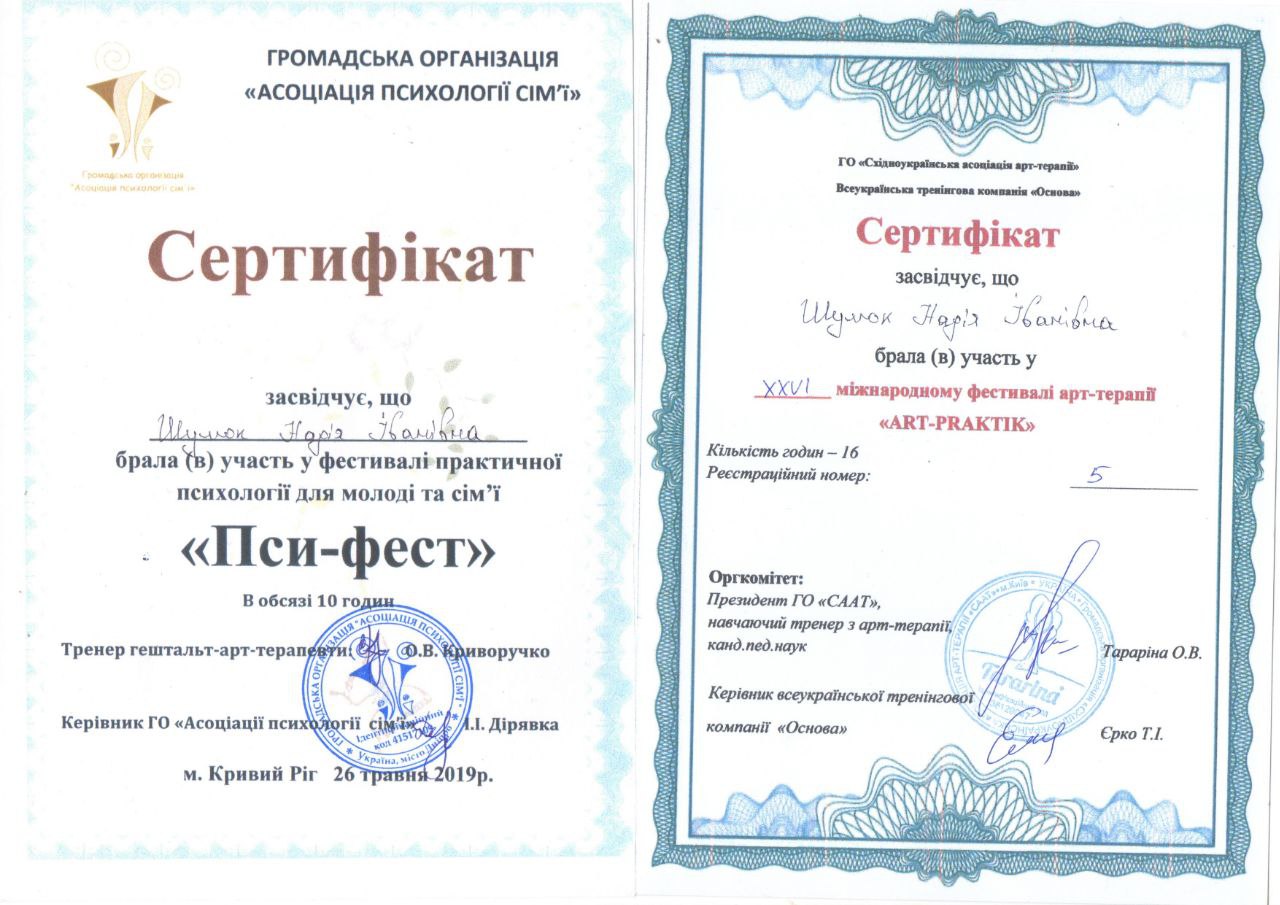 Громадська організація
"Асоціація психології сім'ї"
ГРОМАДСЬКА ОРГАНІЗАЦІЯ
«АСОЦІАЦІЯ ПСИХОЛОГІЇ СІМ’Ї»
Сертифікат
засвідчує, що
Шумок Надія Іванівна
брала (в) участь у фестивалі практичної
психології для молоді та сім’ї
«Пси-фест»
В обсязі 10 годин
Тренер гештальт-арт-терапевти: О.В. Криворучко
Керівник ГО «Асоціації психології сім’ї» І.І. Дірявка
м. Кривий Ріг 26 травня 2019р.
ГРОМАДСЬКА ОРГАНІЗАЦІЯ "АСОЦІАЦІЯ ПСИХОЛОГІЇ СІМ'Ї"
Ідентифікаційний
код
Україна, місто
ГО «Східноукраїнська асоціація арт-терапії»
Всеукраїнська тренінгова компанія «Основа»
Сертифікат
засвідчує, що
Шумок Надія Іванівна
брала (в) участь у
XXVI міжнародному фестивалі арт-терапії
«ART-PRAKTIK»
Кількість годин – 16
Реєстраційний номер: 5
Оргкомітет:
Президент ГО «СААТ»,
навчаючий тренер з арт-терапії,
канд.пед.наук Тараріна О.В.
Керівник всеукраїнської тренінгової
компанії «Основа» Єрко Т.І.
АРТ-ТЕРАПІЇ «СААТ» м.Київ * УКРАЇНА *
Tararina